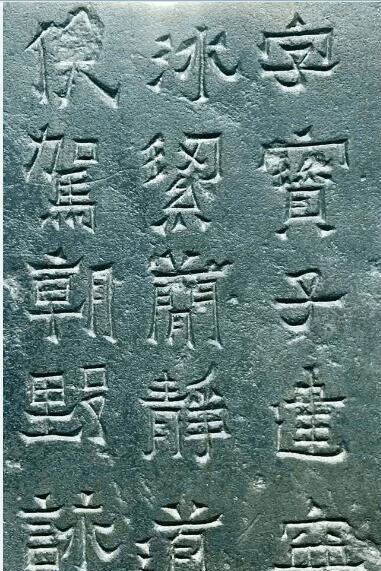 字寶子建寧
冰絜簡靜道
俟駕朝野詠